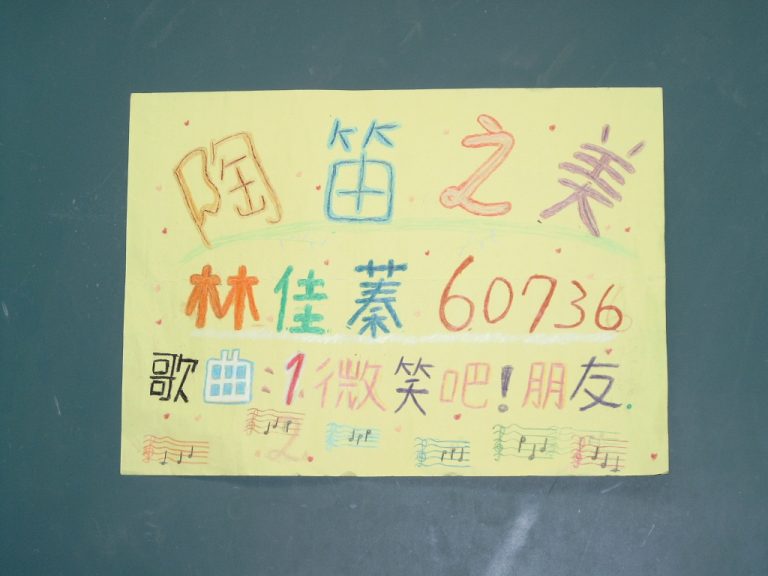 陶笛之美
林佳蓁 60736
歌曲:1微笑吧!朋友.
2